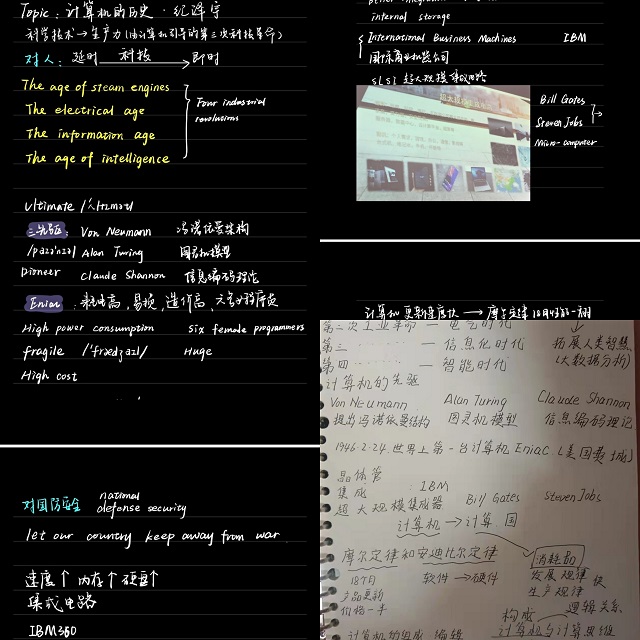 Topic: 计算机的历史 · 纪泽宇
科学技术→生产力(由计算机引导的第三次科技革命)
对人: 延时 科技 → 即时
The age of steam engines
The electrical age
The information age
The age of intelligence
Four industrial
revolutions
ultimate
三先驱: Von Neumann 冯诺依曼架构
Alan Turing 图灵机模型
Pioneer Claude Shannon 信息编码理论
Eniac: 耗电高,易损,造价高,六名女程序员
High power consumption Six female programmers
fragile Huge
High cost
对国防安全 national
defense security
let our country keep away from war
速度↑ 内存↑ 硬盘↑
集成电路
IBM360
internal storage
International Business Machines IBM
国际商业机器公司
SLSI 超大规模集成电路
Bill Gates
Steven Jobs
Micro-computer
计算机更新速度快 → 摩尔定律 18个月一翻
第二次工业革命 — 电气时代
第三 ...... — 信息化时代 拓展人类智慧
第四 ...... — 智能时代 (大数据分析)
计算机的先驱
Von Neumann Alan Turing Claude Shannon
提出冯诺依曼结构 图灵机模型 信息编码理论
1946.2.24.世界上第一台计算机Eniac (美国费城)
晶体管
集成 : IBM
超大规模集成器 Bill Gates Steven Jobs
计算机 → 计算.国
摩尔定律和安迪比尔定律 消耗品
18个月 软件 → 硬件 发展规律 快
产品更新 生产规律
价格一半
构成 逻辑关系
计算机的组成 编辑 计算机与计算思维